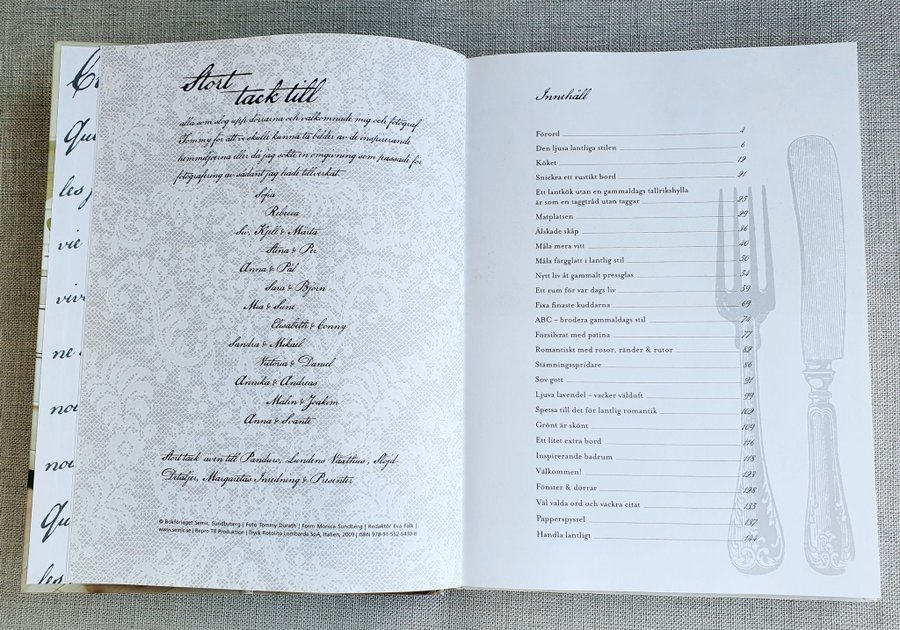 Stort
tack till
alla som slog upp dörrarna och välkomnade mig och fotograf
Tommy för att vi skulle kunna ta bilder av de inspirerande
hemmiljöerna eller då jag sökte en omgivning som passade för
fotografering av sådant jag hade tillverkat.
Sofia
Rebecca
Siv, Kjell & Märta
Stina & Per
Anna & Pål
Sara & Björn
Mia & Sune
Elisabeth & Conny
Sandra & Mikael
Victoria & Daniel
Annika & Andreas
Malin & Joakim
Anna & Svante
Stort tack även till Panduro, Lundens Växthus, Slöjd-
Detaljer, Margaretas Inredning & Presenter
© Bokförlaget Semic, Sundbyberg | Foto Tommy Durath | Form Monica Sundberg | Redaktör Eva Falk |
www.semic.se | Repro TB Produktion | Tryck Rotolito Lombarda SpA, Italien, 2009 | ISBN 978-91-552-5430-8
Innehåll
Förord 4
Den ljusa lantliga stilen 6
Köket 19
Snickra ett rustikt bord 21
Ett lantkök utan en gammaldags tallrikshylla
är som en taggtråd utan taggar 25
Matplatsen 29
Älskade skåp 36
Måla mera vitt 40
Måla färgglatt i lantlig stil 50
Nytt liv åt gammalt pressglas 54
Ett rum för var dags liv 59
Fixa finaste kuddarna 69
ABC – brodera gammaldags stil 74
Försilvrat med patina 77
Romantiskt med rosor, ränder & rutor 82
Stämningsspridare 86
Sov gott 91
Ljuva lavendel – vacker väldoft 99
Spetsa till det för lantlig romantik 102
Grönt är skönt 109
Ett litet extra bord 116
Inspirerande badrum 118
Välkommen! 123
Fönster & dörrar 128
Väl valda ord och vackra citat 135
Papperspyssel 137
Handla lantligt 144